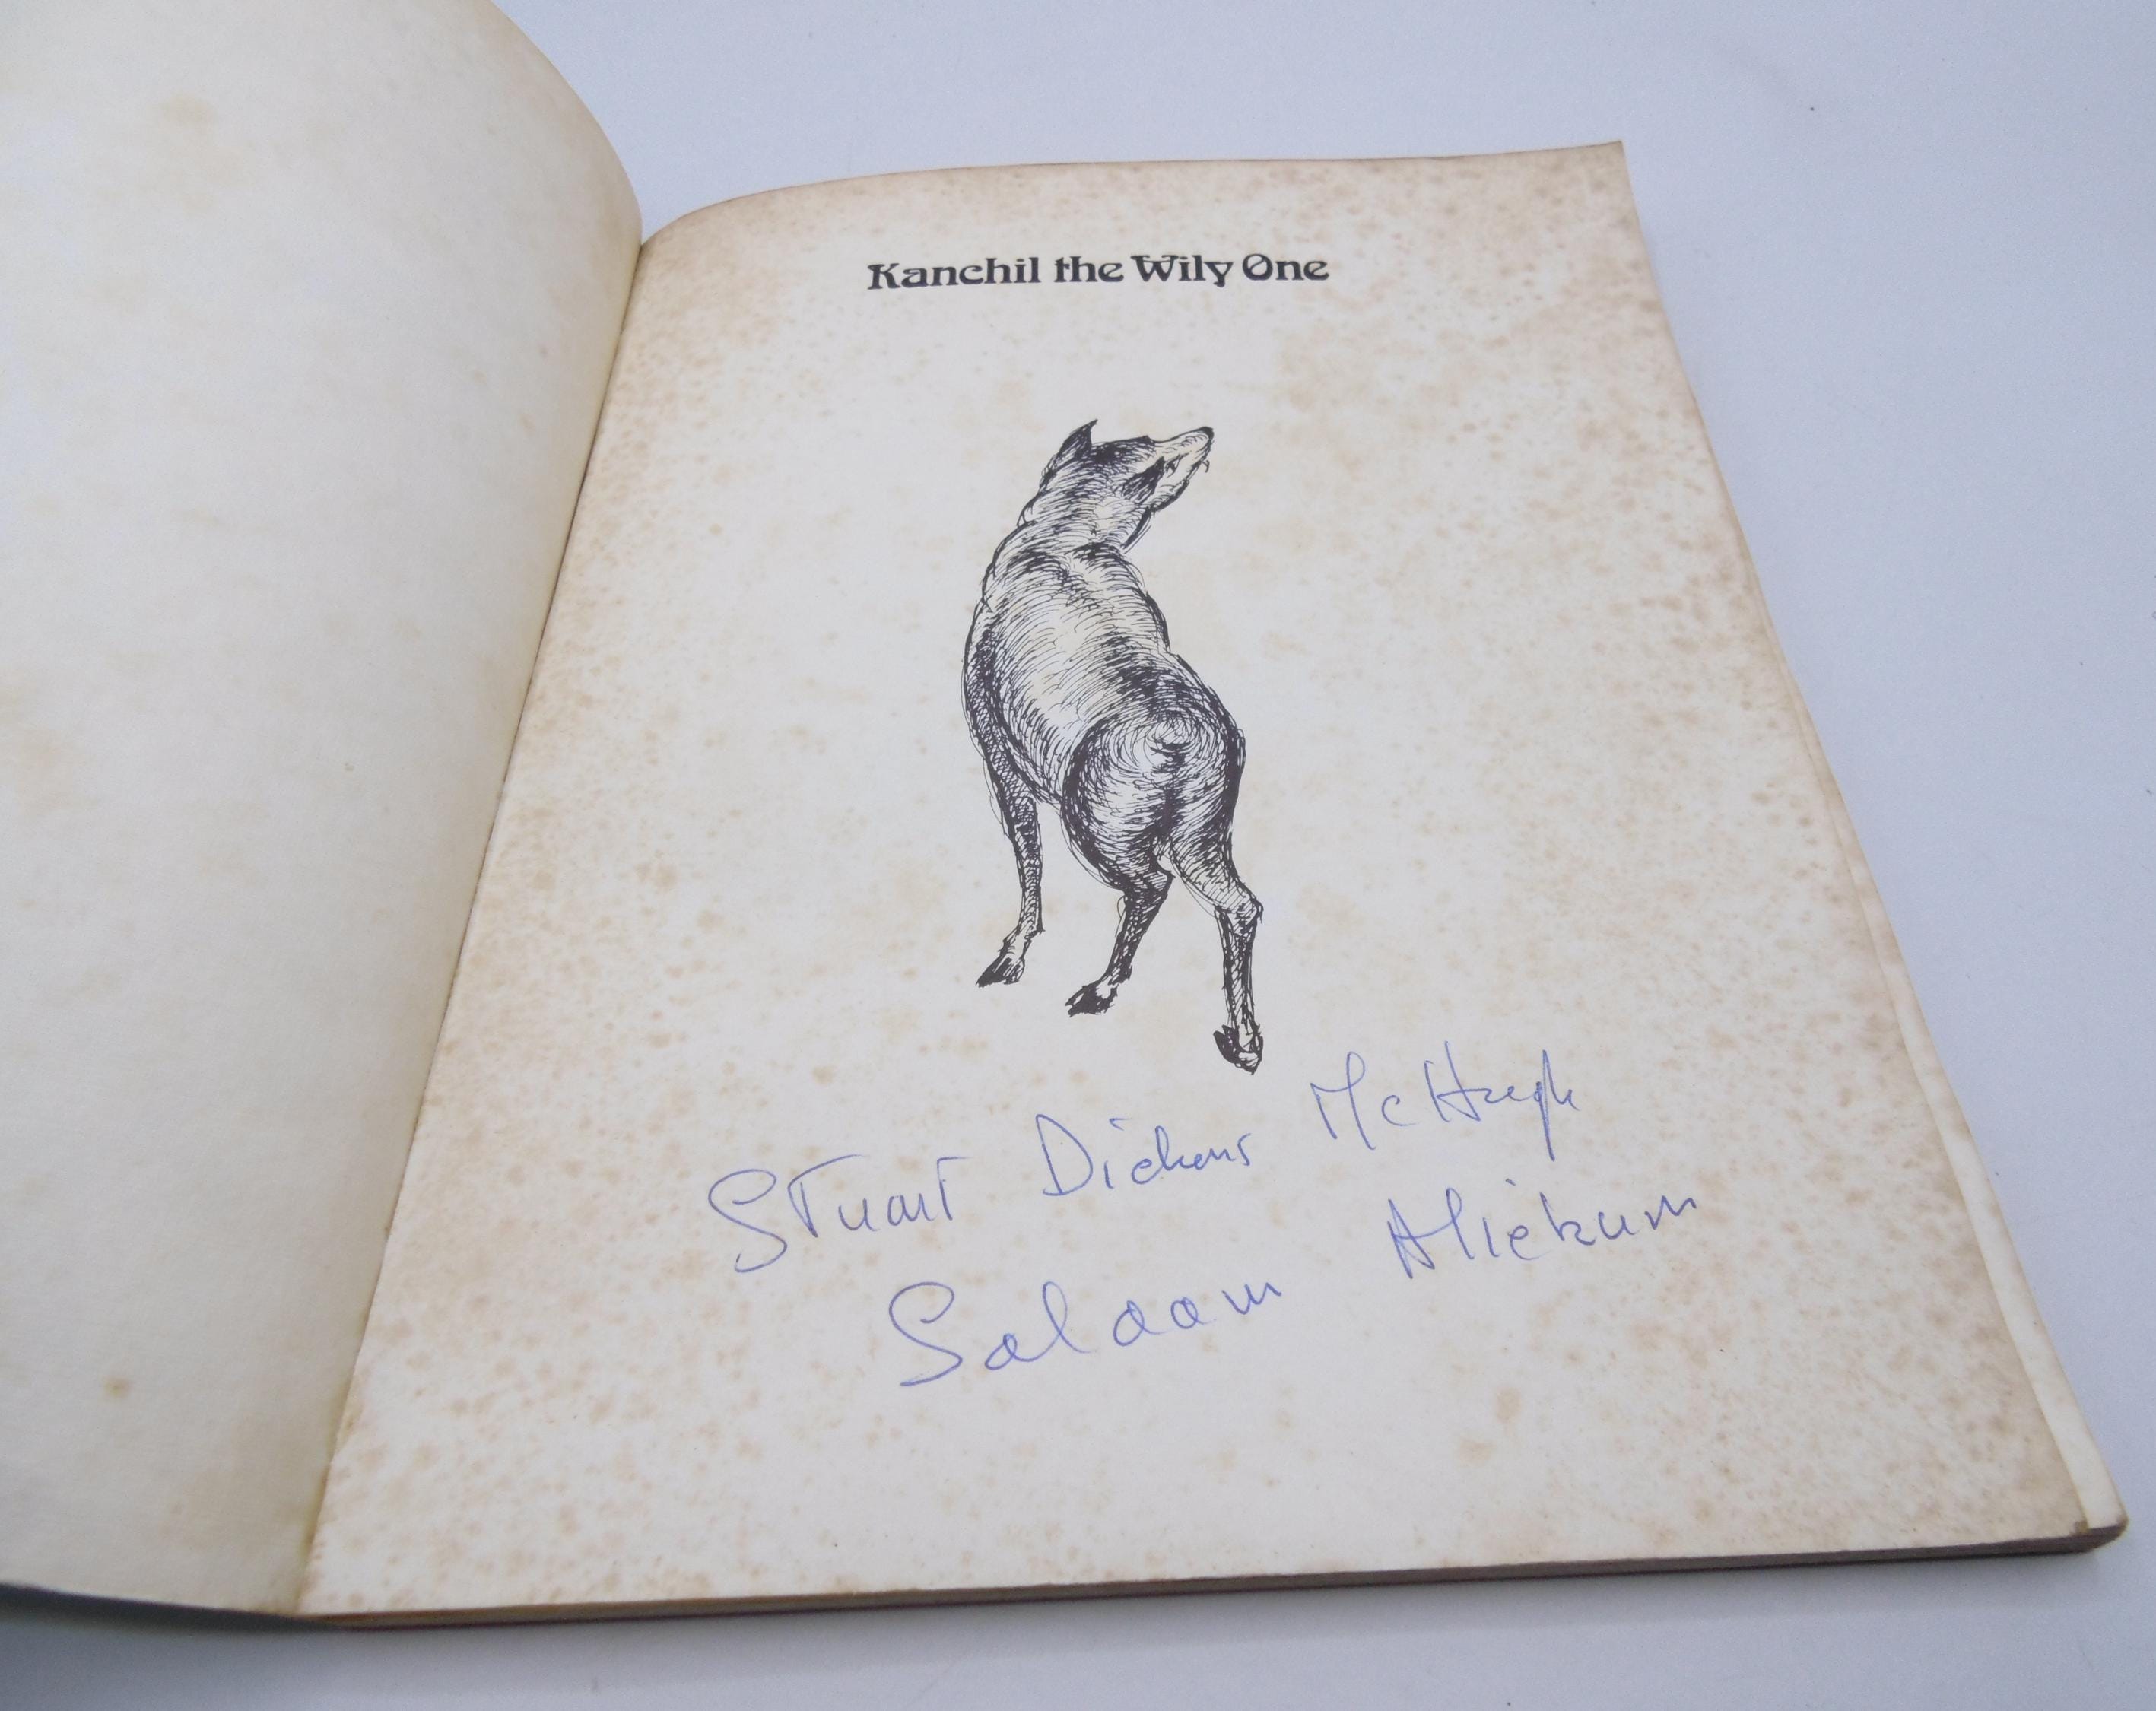 Kanchil the Wily One
Stuart Dickens McHugh
Salaam Aliekum